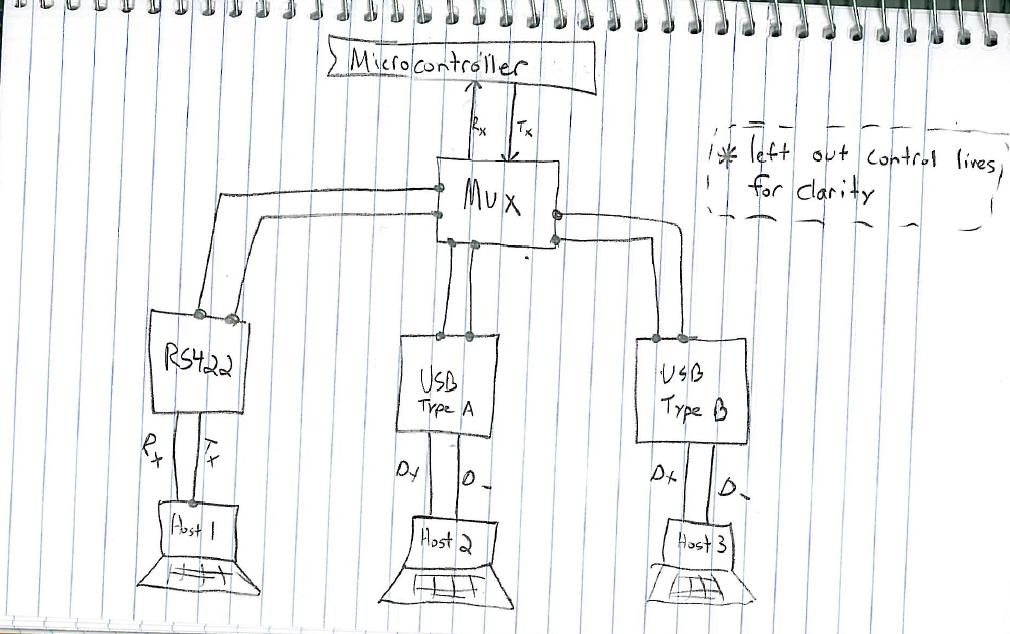 Microcontroller
Rx
Tx
* left out control lines,
for clarity
MUX
RS422
USB
Type A
USB
Type B
Rx
Tx
D+
D-
D+
D-
Host 1
Host 2
Host 3